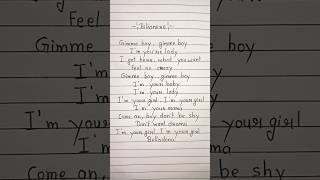 ~ Bihanexe ~
Gimme boy, gimme boy
I'm your lady
I got know, what you want
Feel so crazy
Gimme boy, gimme boy
I'm your baby
I'm your lady
I'm your girl, I'm your girl
I'm your mama
Come on, boy don't be shy
Don't want drama
I'm your girl, I'm your girl
Belladona
Feel
Gimme
I'm
I'm your
Come on,
boy
girl
be shy